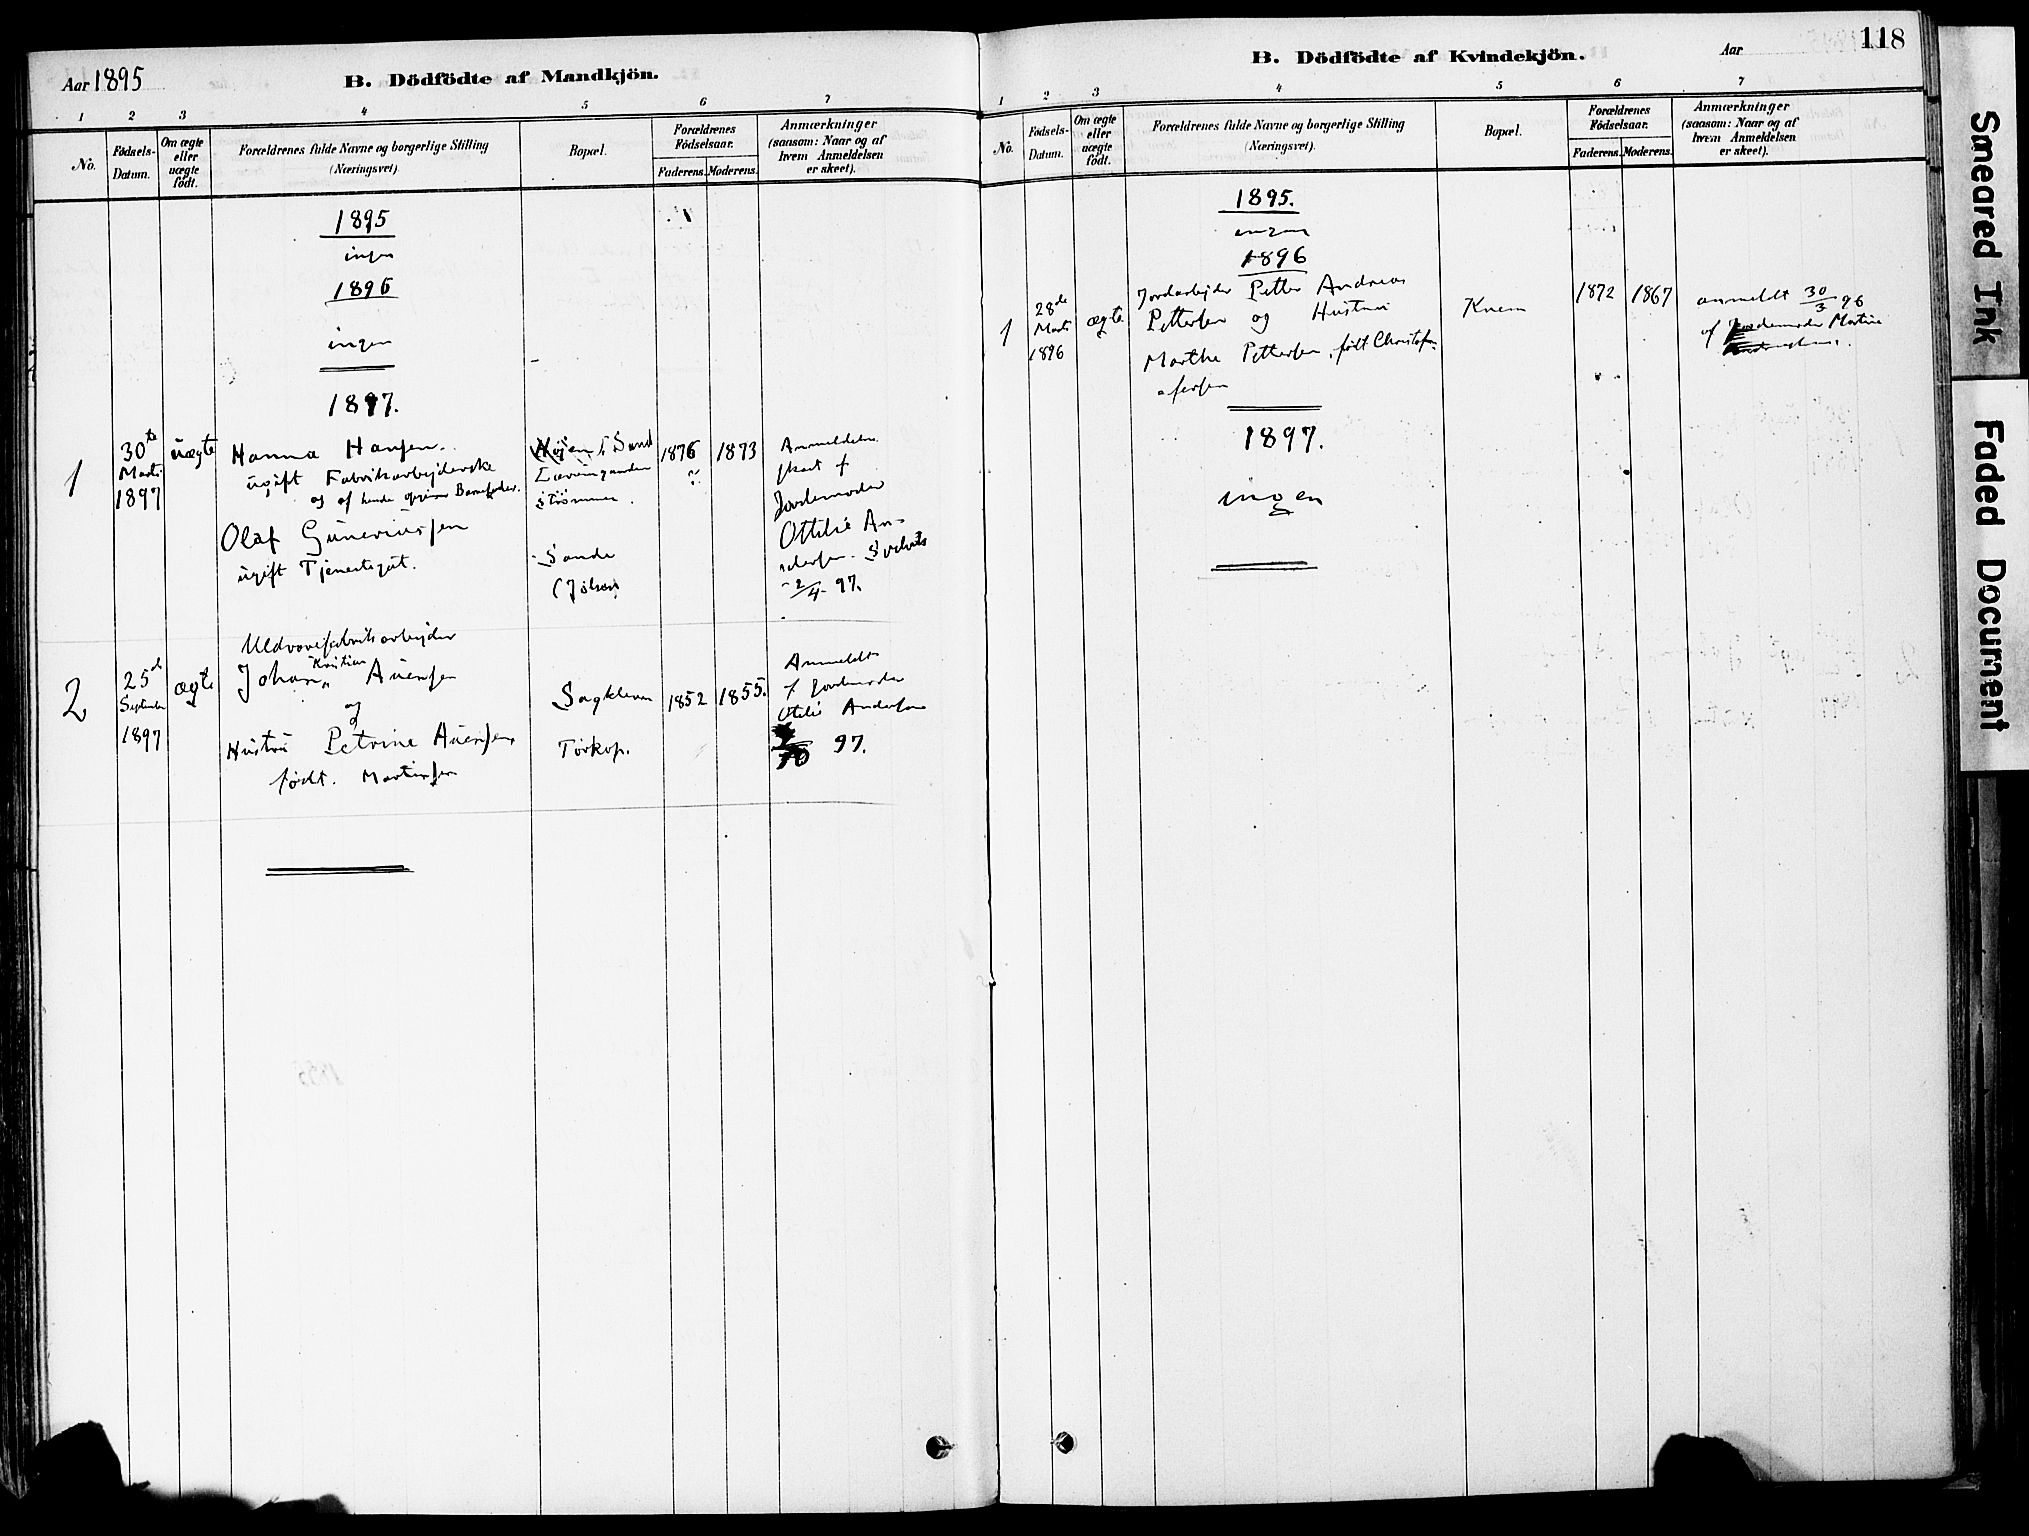 Aar 1895
B. Dödfödte af Mandkjön.
1 2 3 4 5 6 7
No.
Födsels-
Datum.
Om ægte
eller
uægte
födt.
Forældrenes fulde Navne og borgerlige Stilling
(Næringsvei)
Bopæl.
Forældrenes
Födselsaar.
Faderens. Moderens.
Anmærkninger
(saasom: Naar og af
hvem Anmeldelsen
er skeet).
1895
ingen
1896
ingen
1897.
1
30te
Marts
1897
uægte
Hanna Hansen.
ugift Fabrikarbejderske
og af hende opgiven Barnefader.
Olaf Guneriussen
ugift Tjenestegut.
Strømmen.
Sande
1876 1873
Anmeldelse
skeet af
Jordemoder
Ottilie An-
dersen. Svelvik
2/4 97.
2
25de
September
1897
ægte
Uldvarefabrikarbejder
Johan Kristian Auensen
og
Hustru Petrine Auensen
født. Martinsen
Sagkleven
Tørkop.
1852 1855.
Anmeldt
af Jordemoder
Otilie Andersen
97.
118
B. Dödfödte af Kvindekjön.
Aar
1 2 3 4 5 6 7
No.
Födsels-
Datum.
Om ægte
eller
uægte
födt.
Forældrenes fulde Navne og borgerlige Stilling
(Næringsvei).
Bopæl.
Forældrenes
Födselsaar.
Faderens. Moderens.
Anmærkninger
(saasom: Naar og af
hvem Anmeldelsen
er skeet).
1895.
ingen
1896
1
28de
Marts
1896
ægte
Jordarbejder Petter Andreas
Pettersen og Hustru
Marthe Pettersen, født Christof-
fersen
Knem
1872 1867
anmeldt 30/3 96
af Jordemoder Martine
1897.
ingen
Smeared Ink
Faded Document